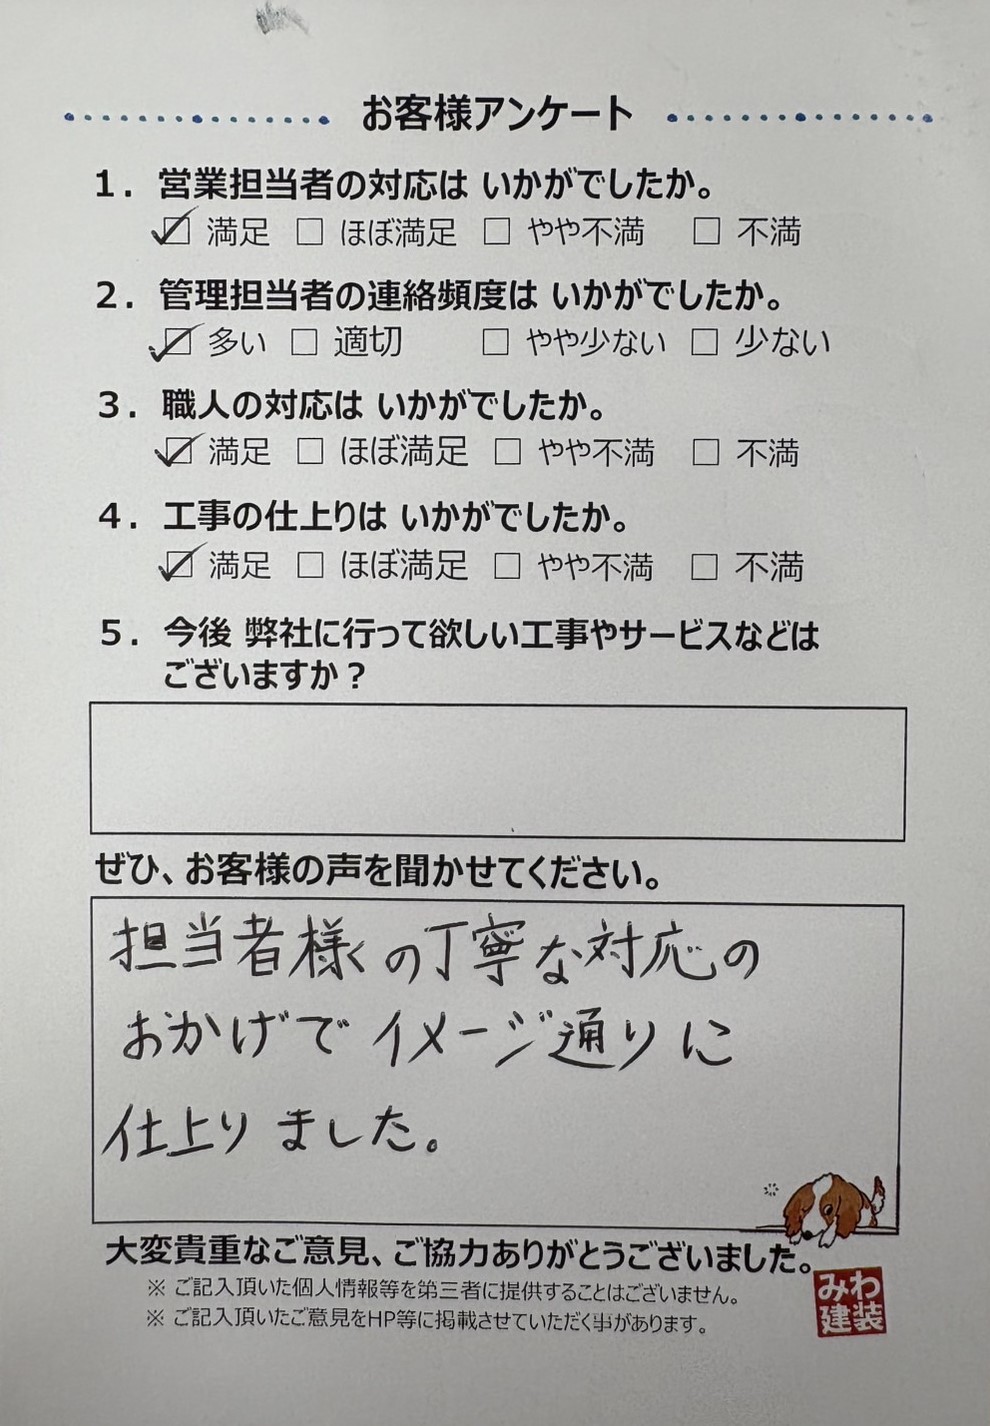 お客様アンケート
1. 営業担当者の対応は いかがでしたか。
☑ 満足 □ ほぼ満足 □ やや不満 □ 不満
2. 管理担当者の連絡頻度は いかがでしたか。
☑ 多い □ 適切 □ やや少ない □ 少ない
3. 職人の対応は いかがでしたか。
☑ 満足 □ ほぼ満足 □ やや不満 □ 不満
4. 工事の仕上りは いかがでしたか。
☑ 満足 □ ほぼ満足 □ やや不満 □ 不満
5. 今後 弊社に行って欲しい工事やサービスなどは
ございますか？
ぜひ、お客様の声を聞かせてください。
担当者様の丁寧な対応の
おかげで イメージ通りに
仕上りました。
大変貴重なご意見、ご協力ありがとうございました。
※ ご記入頂いた個人情報等を第三者に提供することはございません。
※ ご記入頂いたご意見をHP等に掲載させていただく事があります。
みわ
建装